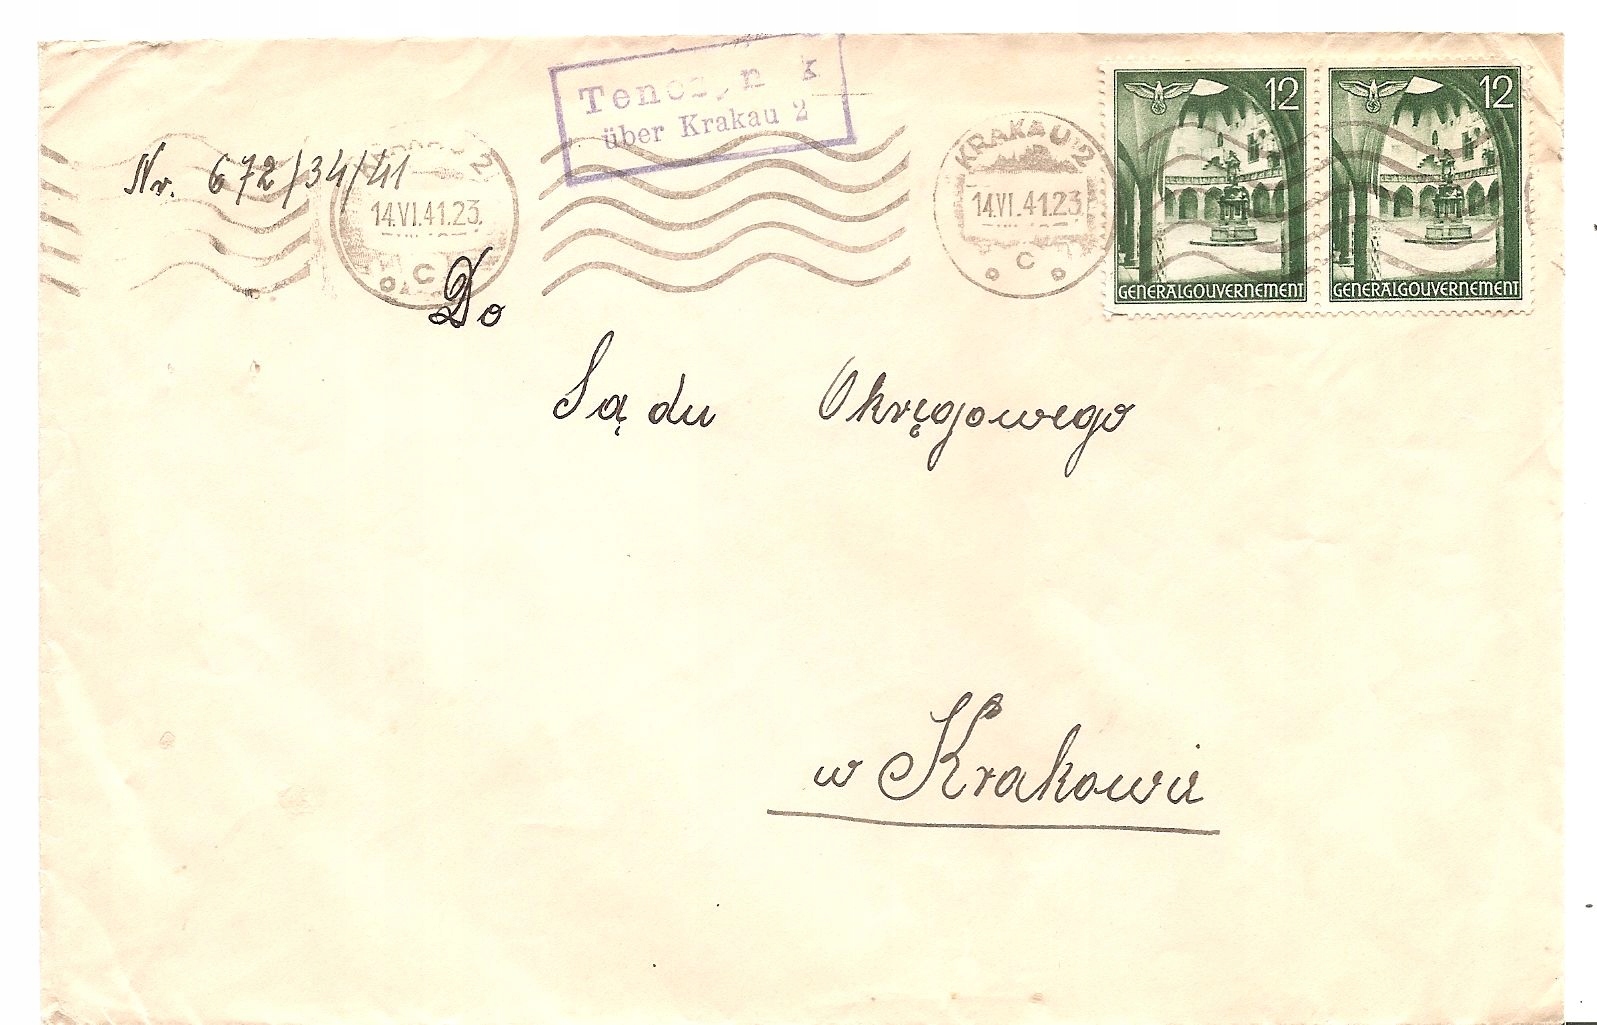 Tenczynek
über Krakau 2
Nr. 672/34/41
KRAKAU 2
14.VI.41.23.
C
KRAKAU 2
14.VI.41.23.
C
12
GENERALGOUVERNEMENT
12
GENERALGOUVERNEMENT
Do
Sądu Okręgowego
w Krakowie